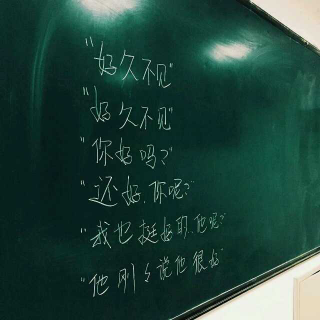 "好久不见"
"好久不见"
"你好吗?"
"还好.你呢?"
"我也挺好的..他呢?"
"他刚々说他很好"